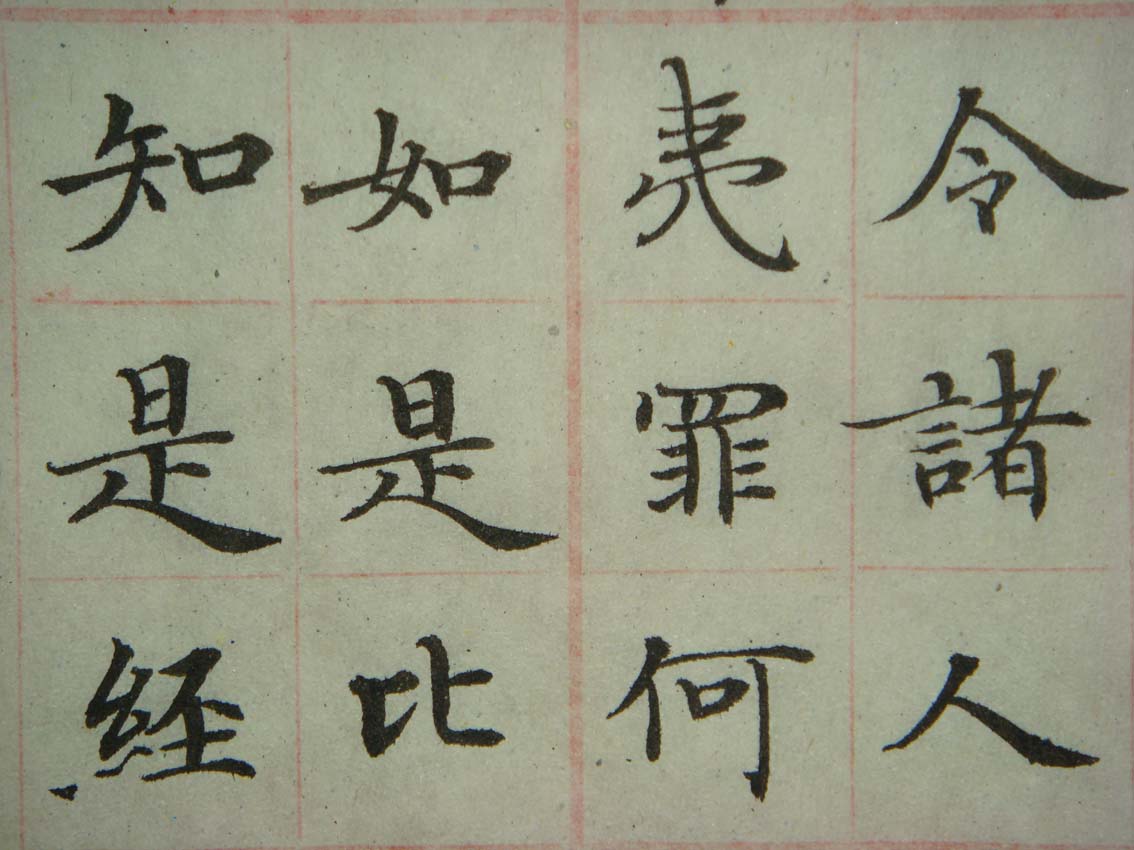 令諸人
夷罪何
如是比
知是経